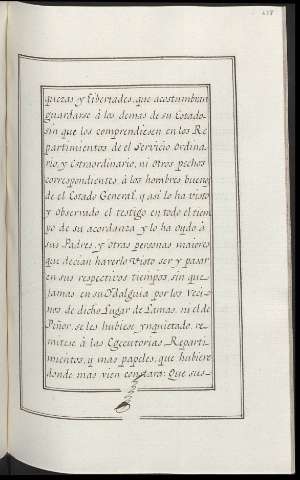 quezas y Libertades, que acostumbran
guardarse à los demas de su Estado
sin que los comprendiesen en los Re
partimientos de el Servicio Ordina
rio, y Estraordinario, ni otros pechos
correspondientes, à los hombres bueno
de el Estado General, y asi lo ha visto
y observado el testigo en todo el tiem
po de su acordanza, y lo ha oydo à
sus Padres, y otras personas maiores
que decian haverlo Visto ser y pasar
en sus respectivos tiempos, sin que
Jamas en su Ydalguia por los Veci-
nos, de dicho Lugar de Lamas, ni el de
Peñor, se les hubiese ynquietado, re-
mitese à las Egecutorias, Reparti-
mientos, y mas papeles, que hubiere
donde mas vien constará: Que sus-